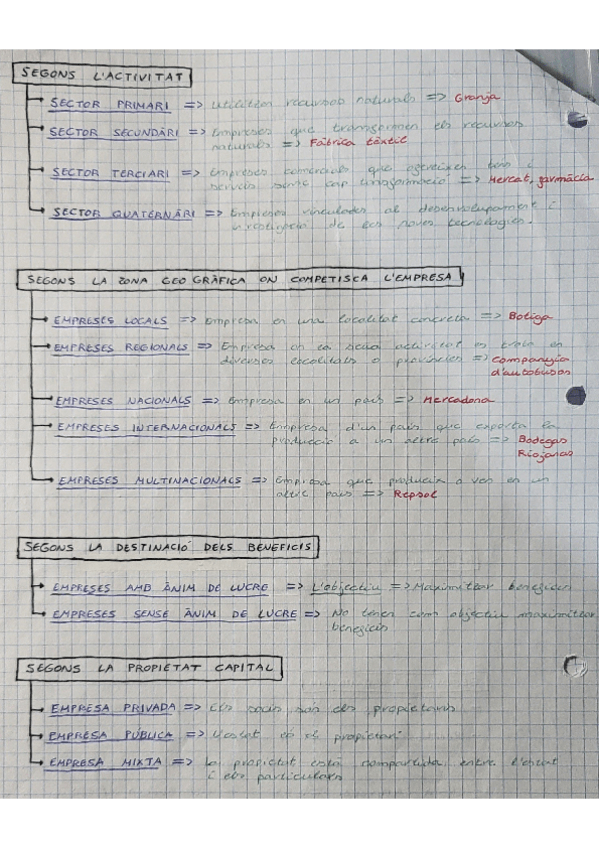 SEGONS L'ACTIVITAT
SECTOR PRIMARI => Utilitzen recursos naturals => Granja
SECTOR SECUNDÀRI => Empreses que transformen els recursos
naturals => Fàbrica tèxtil
SECTOR TERCIARI => Empreses comercials que ofereixen bens i
serveis sense cap transformació => Mercat, farmàcia
SECTOR QUATERNÀRI => Empreses vinculades al desenvolupament i
investigació de les noves tecnologies.
SEGONS LA ZONA GEOGRÀFICA ON COMPETISCA L'EMPRESA
EMPRESES LOCALS => Empresa en una localitat concreta => Botiga
EMPRESES REGIONALS => Empresa on la seua activitat es troba en
diverses localitats o províncies => Companyia
d'autobusos
EMPRESES NACIONALS => Empresa en un país => Mercadona
EMPRESES INTERNACIONALS => Empresa d'un país que exporta la
producció a un altre país => Bodegas
Riojanas
EMPRESES MULTINACIONALS => Empresa que produeix o ven en un
altre país => Repsol
SEGONS LA DESTINACIÓ DELS BENEFICIS
EMPRESES AMB ÀNIM DE LUCRE => L'objectiu => Maximitzar beneficis
EMPRESES SENSE ÀNIM DE LUCRE => No tenen com objectiu maximitzar
beneficis
SEGONS LA PROPIETAT CAPITAL
EMPRESA PRIVADA => Els socis són els propietaris
EMPRESA PÚBLICA => L'estat és el propietari
EMPRESA MIXTA => La propietat està compartida entre l'estat
i els particulars